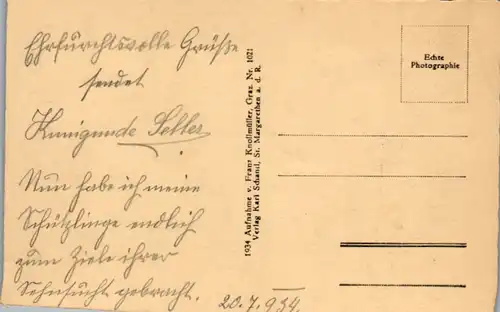 Ehrfurchtsvolle Grüße
sendet
Kunigunde Seller
Nun habe ich meine
Schützlinge endlich
zum Ziele ihrer
Sehnsucht gebracht.
20.7.934.
1934 Aufnahme v. Franz Knollmüller, Graz. Nr. 1021
Verlag Karl Schantl, St. Margarethen a. d. R.
Echte
Photographie